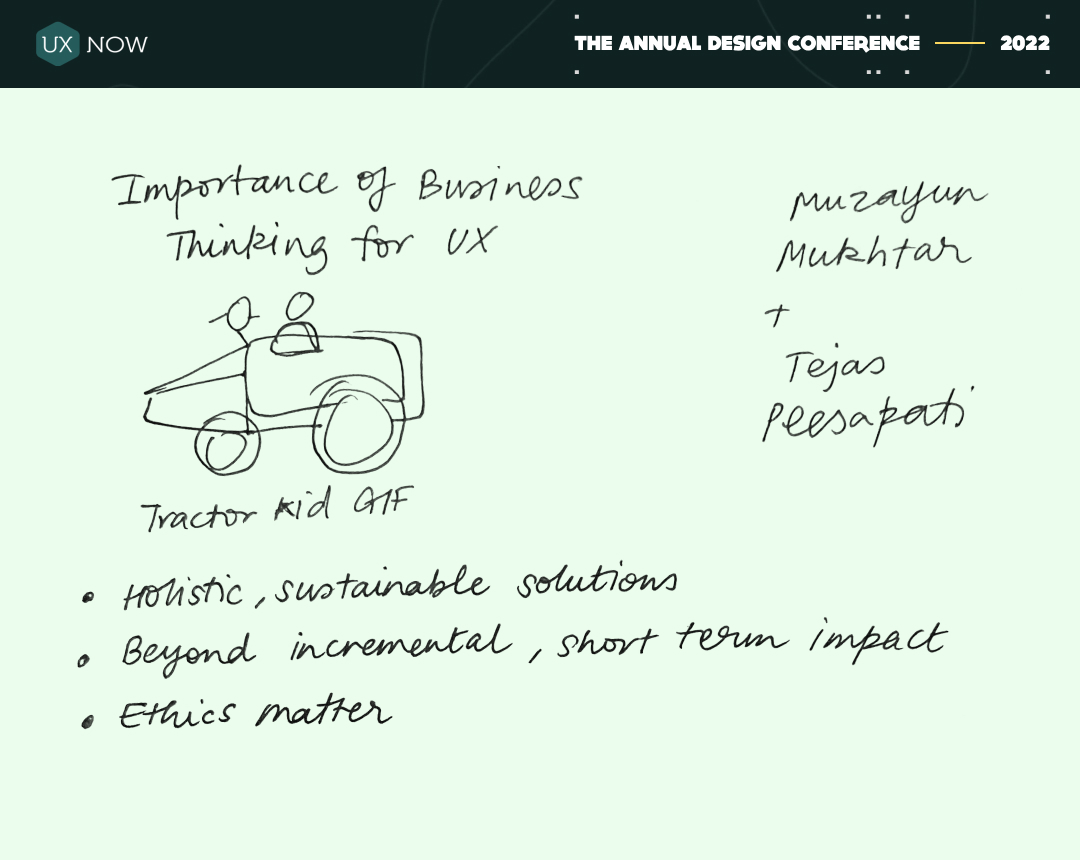 UX NOW
THE ANNUAL DESIGN CONFERENCE — 2022
Importance of Business
Thinking for UX
Muzayun
Mukhtar
+
Tejas
Peesapati
Tractor Kid GIF
• Holistic, sustainable solutions
• Beyond incremental, short term impact
• Ethics matter